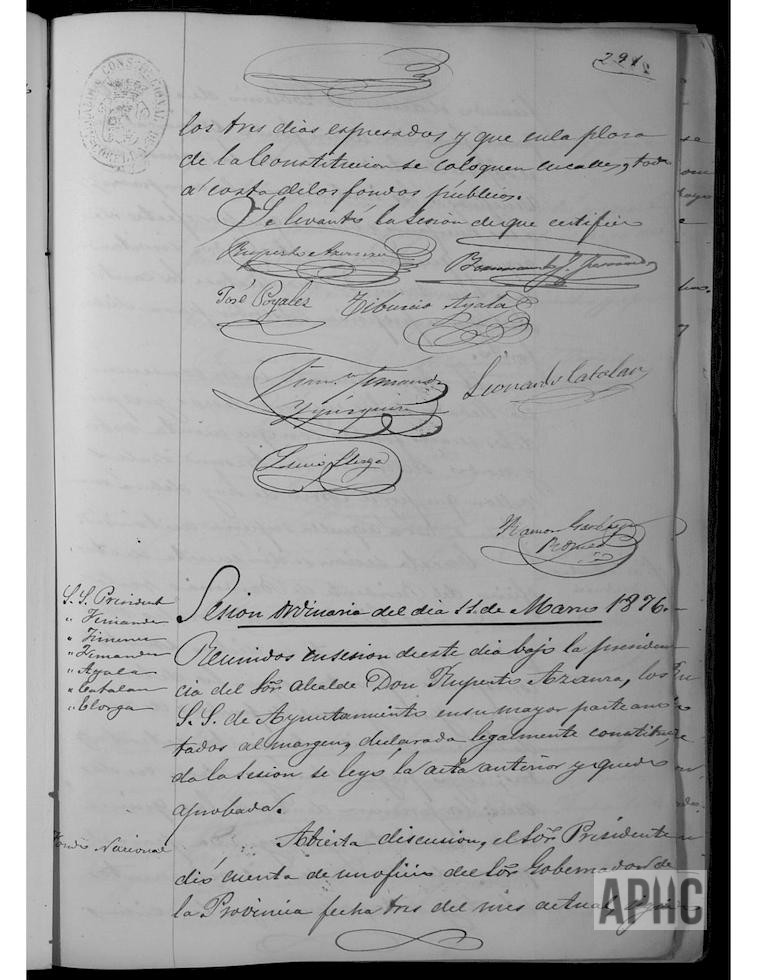 291
los tres dias espresados y que en la plaza
de la Constitucion se coloquen cucañas, todo
á costa de los fondos públicos.
Se levantó la sesion de que certifico
Ruperto Azaura
José Poyales Tiburcio Ayala
Leonardo Catalan
Luis Elorga
Ramon
S. S. President
" Fernandez
" Ximenez
" Fernandez
" Ayala
" Catalan
" Elorga
Sesion Ordinaria del dia 11 de Marzo 1876.
Reunidos en sesion de este dia bajo la presiden
cia del Sor Alcalde Don Ruperto Azaura, los
S. S. de Ayuntamiento en su mayor parte ano
tados al margen, declarada legalmente constitui
da la sesion se leyó la acta anterior y quedó
aprobada.
Nacional
Abierta discusion, el Sor Presidente
dió cuenta de un oficio del Sor Gobernador de
la Provincia fecha tres del mes actual
APHC